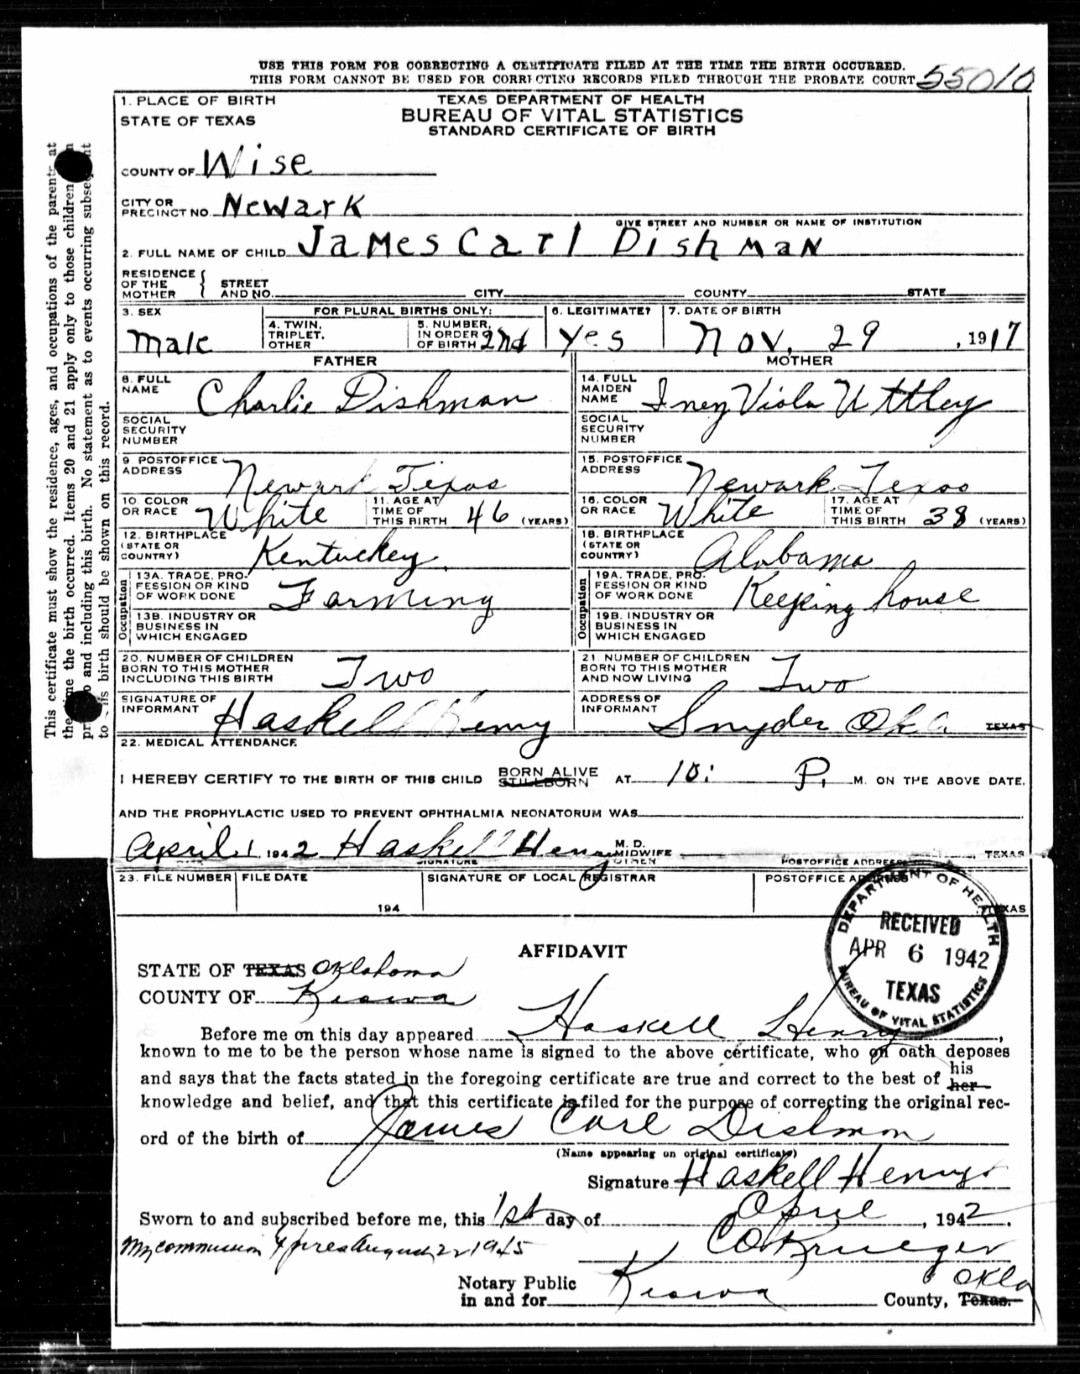 USE THIS FORM FOR CORRECTING A CERTIFICATE FILED AT THE TIME THE BIRTH OCCURRED.
THIS FORM CANNOT BE USED FOR CORRECTING RECORDS FILED THROUGH THE PROBATE COURT
55010
1. PLACE OF BIRTH
STATE OF TEXAS
TEXAS DEPARTMENT OF HEALTH
BUREAU OF VITAL STATISTICS
STANDARD CERTIFICATE OF BIRTH
COUNTY OF Wise
CITY OR PRECINCT NO. Newark
GIVE STREET AND NUMBER OR NAME OF INSTITUTION
2. FULL NAME OF CHILD James Carl Dishman
RESIDENCE OF THE MOTHER { STREET AND NO. CITY COUNTY STATE
3. SEX Male
FOR PLURAL BIRTHS ONLY:
4. TWIN, TRIPLET, OTHER
5. NUMBER, IN ORDER OF BIRTH 2nd
6. LEGITIMATE? Yes
7. DATE OF BIRTH Nov. 29, 1917
FATHER
MOTHER
8. FULL NAME Charlie Dishman
14. FULL MAIDEN NAME Inez Viola Uttley
SOCIAL SECURITY NUMBER
SOCIAL SECURITY NUMBER
9 POSTOFFICE ADDRESS Newark Texas
15. POSTOFFICE ADDRESS Newark Texas
10 COLOR OR RACE White
11. AGE AT TIME OF THIS BIRTH 46 (YEARS)
16. COLOR OR RACE White
17. AGE AT TIME OF THIS BIRTH 38 (YEARS)
12. BIRTHPLACE (STATE OR COUNTRY) Kentuckey
18. BIRTHPLACE (STATE OR COUNTRY) Alabama
Occupation
13A. TRADE, PROFESSION OR KIND OF WORK DONE Farming
13B. INDUSTRY OR BUSINESS IN WHICH ENGAGED
Occupation
19A. TRADE, PROFESSION OR KIND OF WORK DONE Keeping house
19B. INDUSTRY OR BUSINESS IN WHICH ENGAGED
20. NUMBER OF CHILDREN BORN TO THIS MOTHER INCLUDING THIS BIRTH Two
21 NUMBER OF CHILDREN BORN TO THIS MOTHER AND NOW LIVING Two
SIGNATURE OF INFORMANT Haskell Henry
ADDRESS OF INFORMANT Snyder Okla TEXAS
22. MEDICAL ATTENDANCE
I HEREBY CERTIFY TO THE BIRTH OF THIS CHILD BORN ALIVE STILLBORN AT 10: P. M. ON THE ABOVE DATE.
AND THE PROPHYLACTIC USED TO PREVENT OPHTHALMIA NEONATORUM WAS
April 1 1942 Haskell Henry M. D. MIDWIFE OTHER TEXAS
SIGNATURE POSTOFFICE ADDRESS
23. FILE NUMBER FILE DATE SIGNATURE OF LOCAL REGISTRAR POSTOFFICE ADDRESS
194 TEXAS
This certificate must show the residence, ages, and occupations of the parents at
the time the birth occurred. Items 20 and 21 apply only to those children
and including this birth. No statement as to events occurring subsequent
to this birth should be shown on this record.
DEPARTMENT OF HEALTH
RECEIVED
APR 6 1942
TEXAS
BUREAU OF VITAL STATISTICS
AFFIDAVIT
STATE OF TEXAS Oklahoma
COUNTY OF Kiowa
Before me on this day appeared Haskell Henry,
known to me to be the person whose name is signed to the above certificate, who on oath deposes
and says that the facts stated in the foregoing certificate are true and correct to the best of his her
knowledge and belief, and that this certificate is filed for the purpose of correcting the original rec-
ord of the birth of James Carl Dishman
(Name appearing on original certificate)
Signature Haskell Henry
Sworn to and subscribed before me, this 1st day of April, 1942.
My commission Expires August 2, 1945
C O Krueger
Notary Public
in and for Kiowa County, Texas. Okla